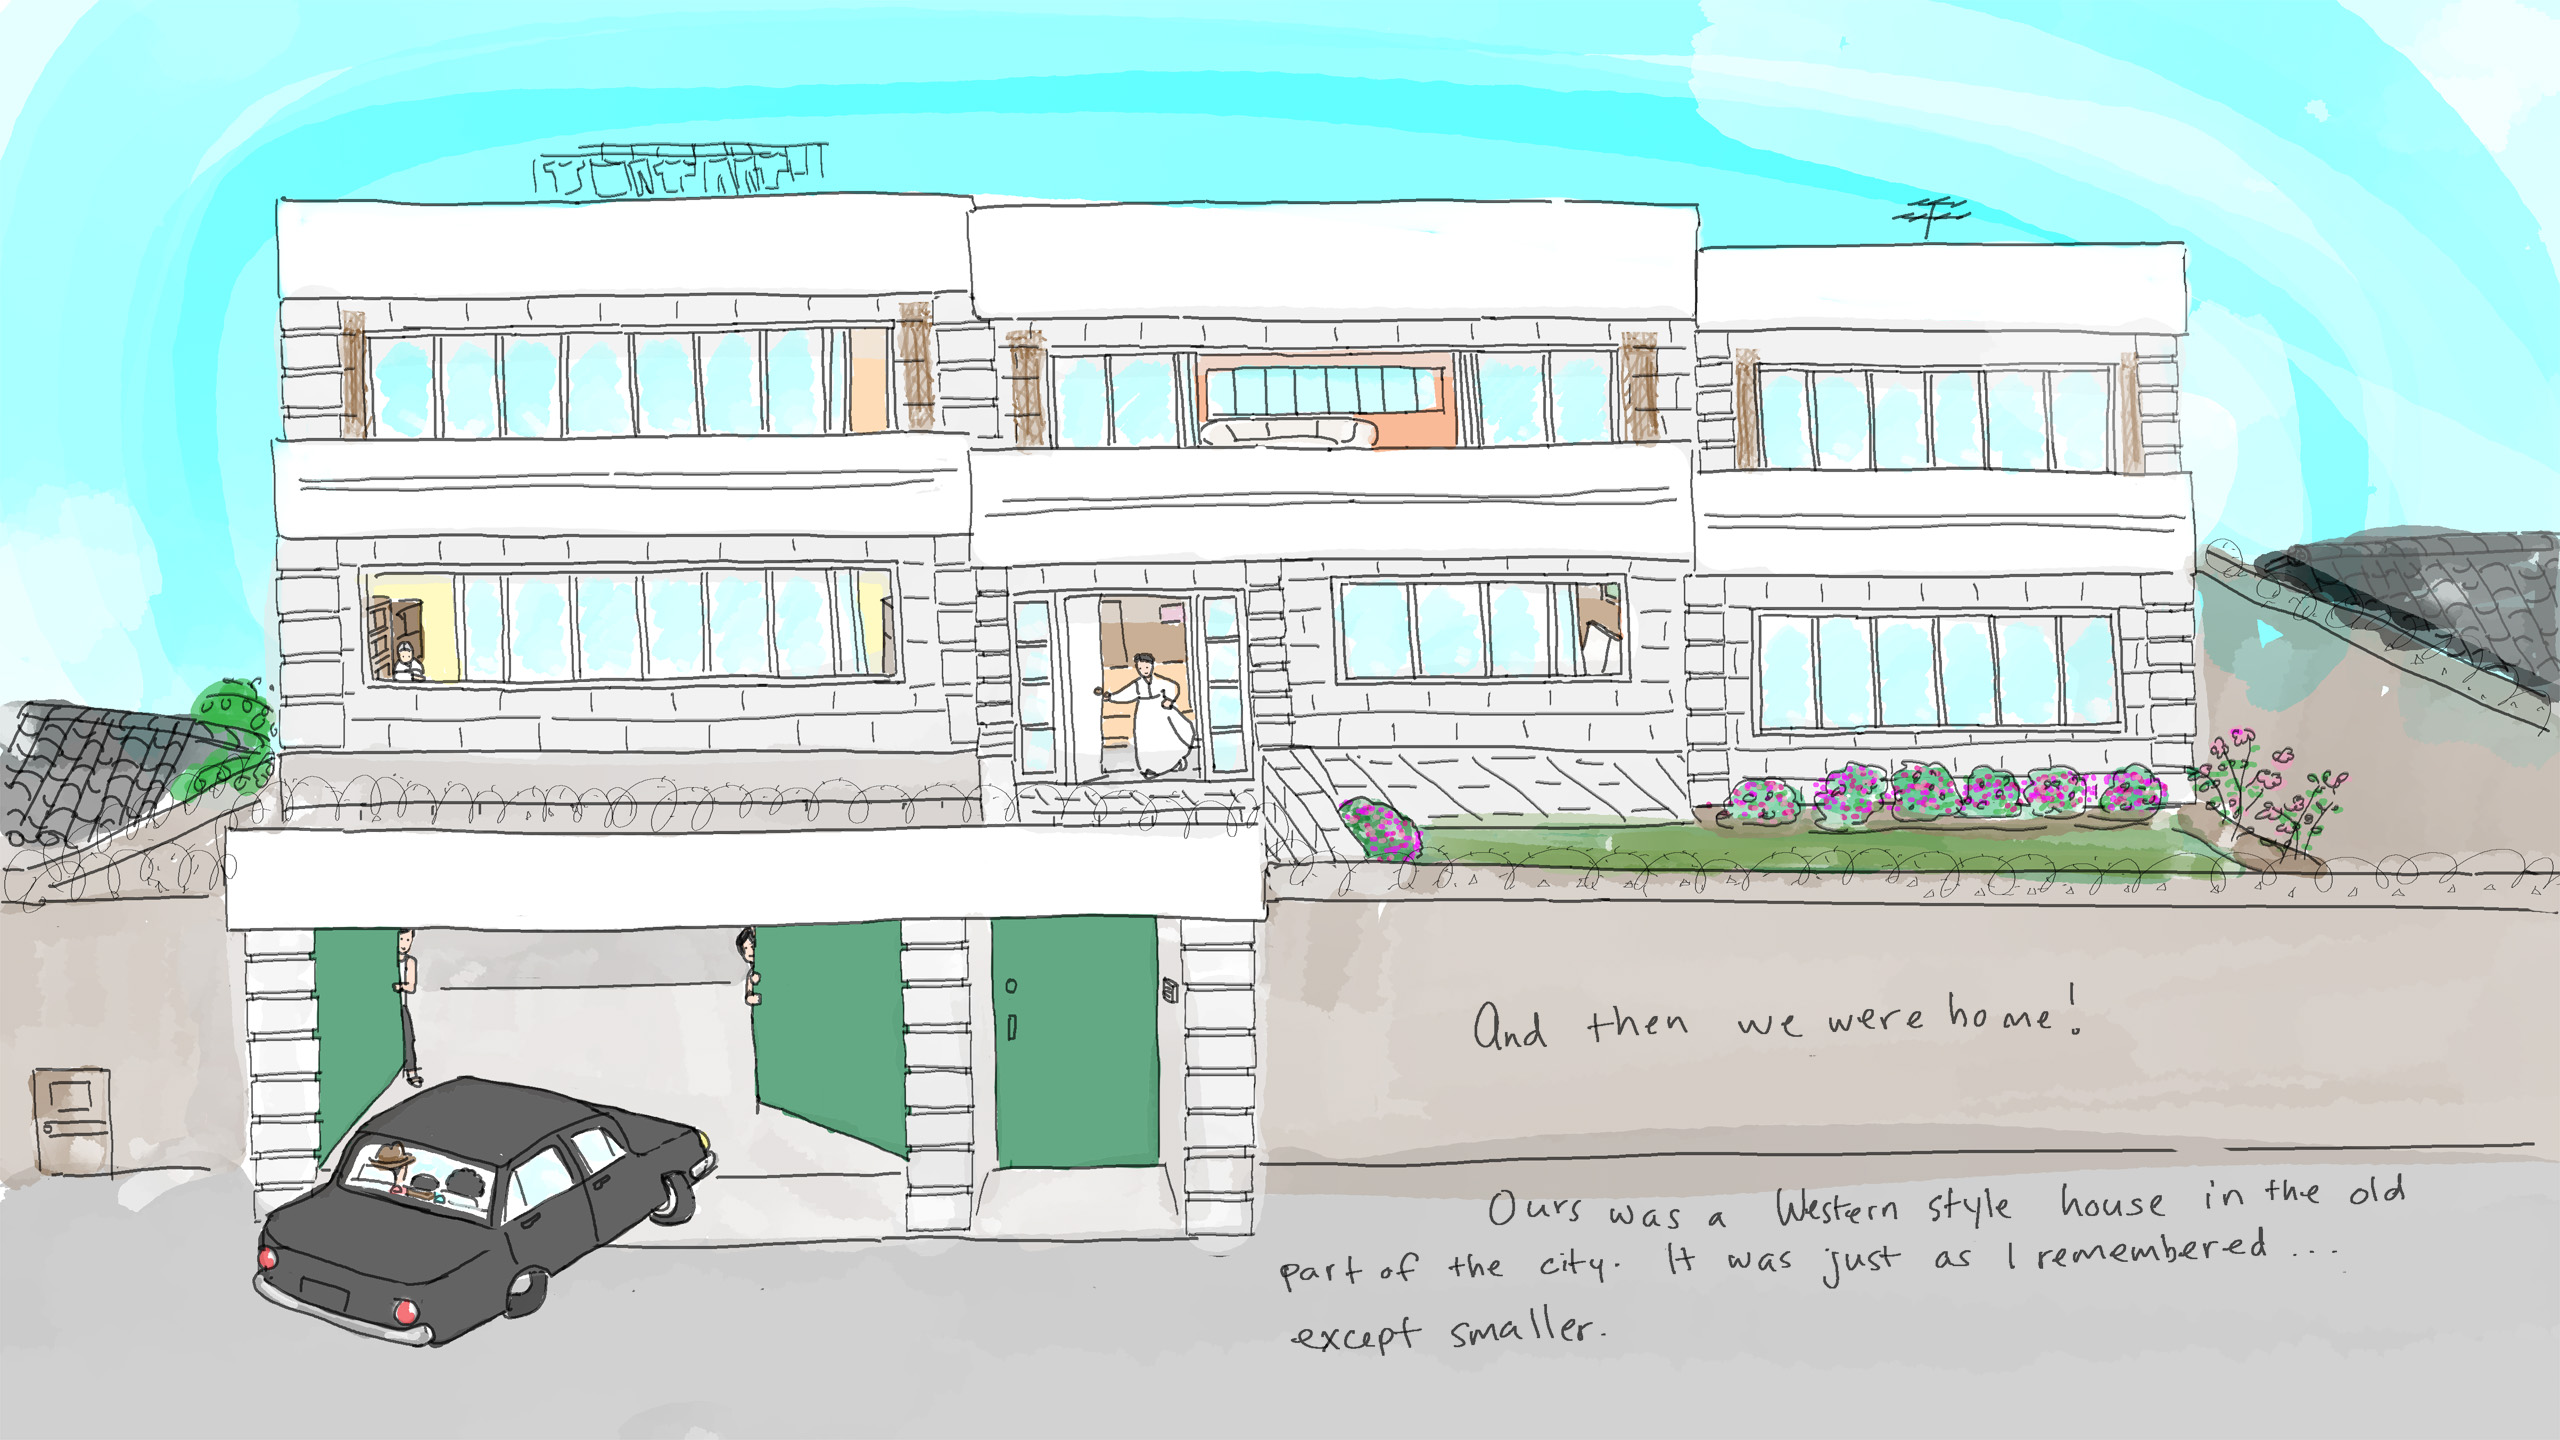 And then we were home!
Ours was a Western style house in the old
part of the city. It was just as I remembered...
except smaller.